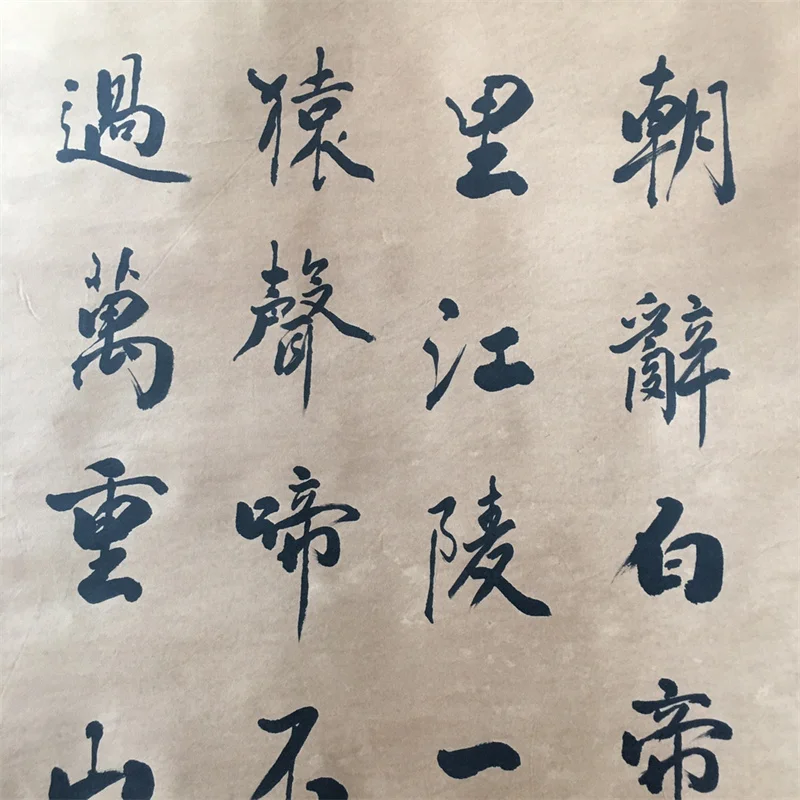 朝辭白帝
里江陵一
猿聲啼不
過萬重山